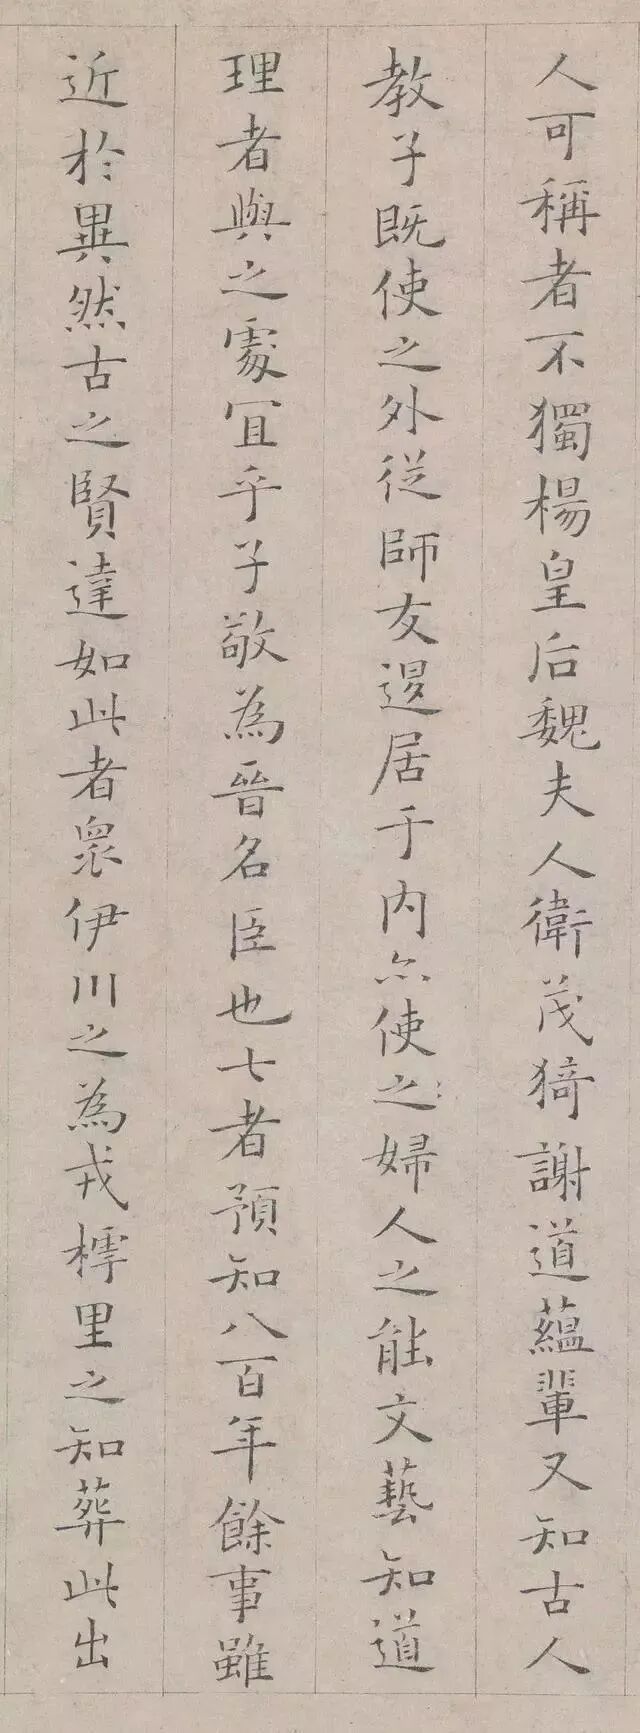 人可稱者不獨楊皇后魏夫人衛茂猗謝道蘊輩又知古人
教子既使之外從師友退居于内亦使之婦人之能文藝知道
理者與之處宜乎子敬為晉名臣也七者預知八百年餘事雖
近於異然古之賢達如此者眾伊川之為戎樗里之知葬此出